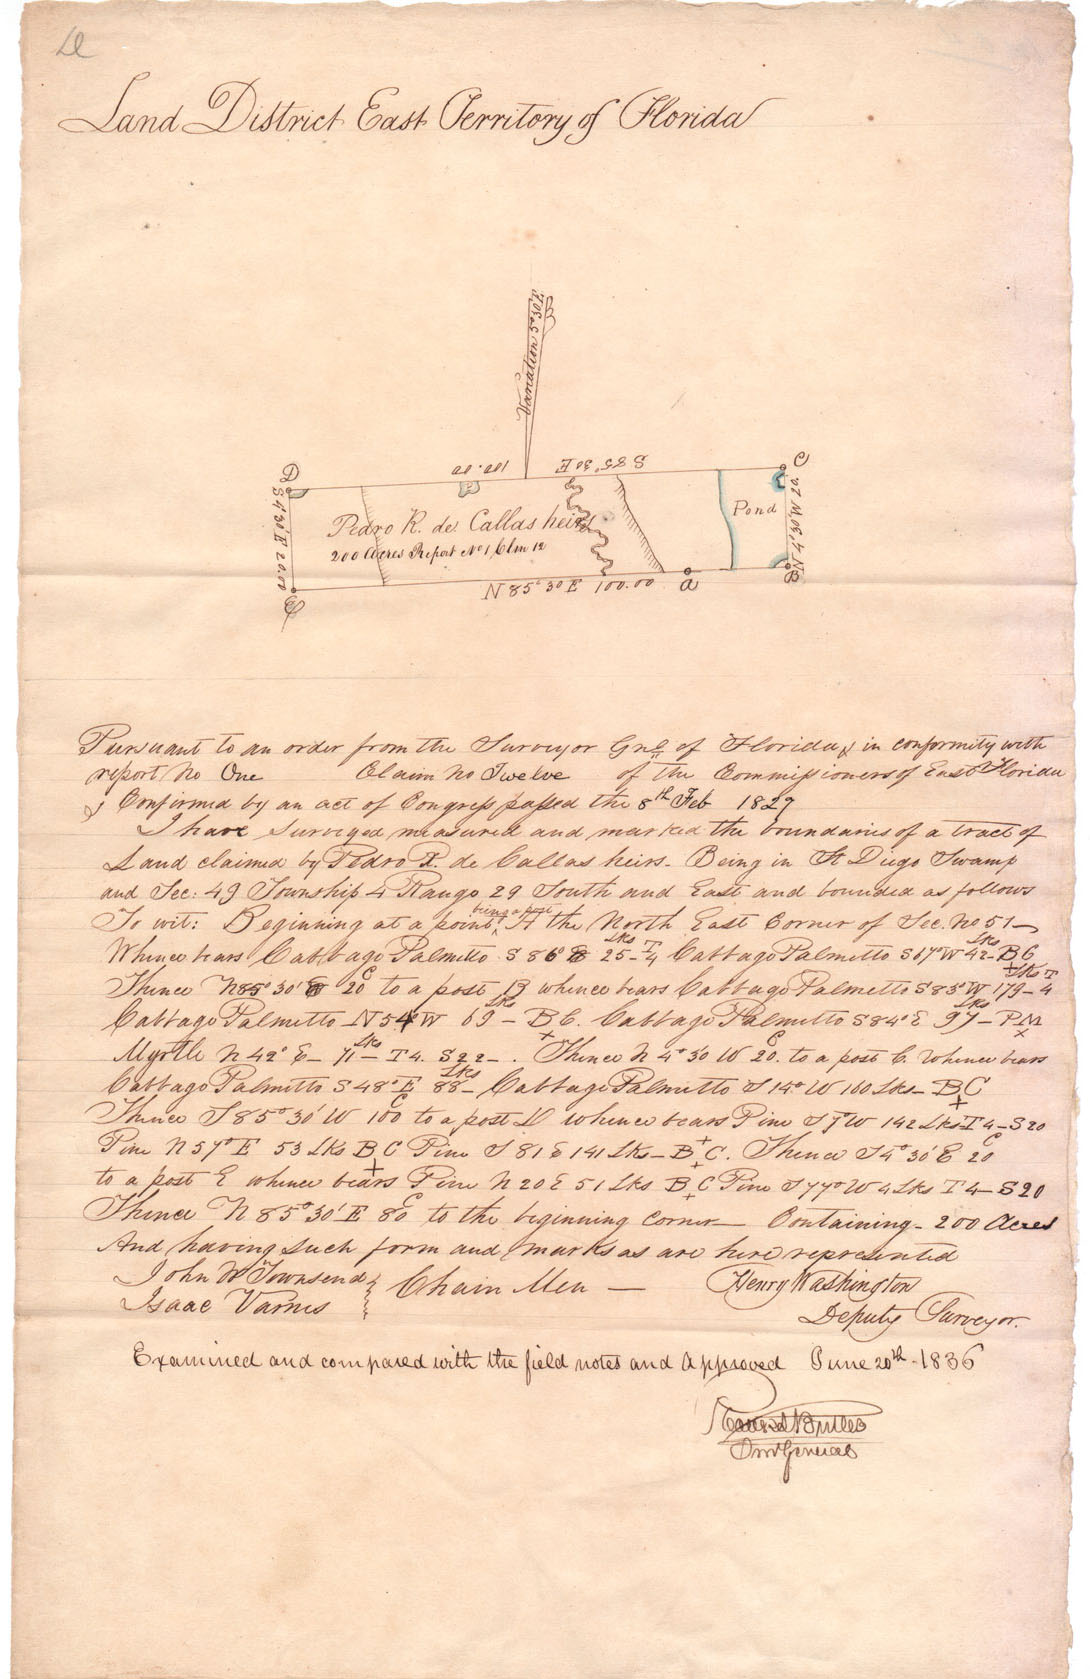 Land District East Territory of Florida
Variation 5° 30' E
D
100.00 S 85° 30' E
C
S 4° 30' E 20.00
Pedro R. de Callas heirs
200 Acres Report No 1, Clm 12
Pond
N 4° 30' W 20
N 85° 30' E 100.00
a
B
E
Pursuant to an order from the Surveyor Gnl of Florida & in conformity with
report No One Claim No Twelve of the Commissioners of East Florida
& Confirmed by an act of Congress passed the 8th Feb 1827
I have Surveyed measured and marked the boundaries of a tract of
Land claimed by Pedro R. de Callas heirs. Being in St Diego Swamp
and Sec: 49 Township 4 Range 29 South and East and bounded as follows
To wit: Beginning at a point being a post A the North East Corner of Sec. No 51—
Whence bears Cabbage Palmetto S 86° E 25 Lks T 4 Cabbage Palmetto S 67° W 42 Lks B C
Thence N 85° 30' E 20 C to a post B whence bears Cabbage Palmetto S 83° W 179 Lks T 4
Cabbage Palmetto N 54 W 69 Lks B C. Cabbage Palmetto S 84° E 97 Lks P M
Myrtle N 42° E 71 Lks T 4. S 22 —. Thence N 4° 30 W 20 C. to a post C. whence bears
Cabbage Palmetto S 48° E 88 Lks Cabbage Palmetto S 14° W 160 Lks B C
Thence S 85° 30' W 100 C to a post D whence bears Pine S 7° W 142 Lks T 4 S 20
Pine N 57° E 53 Lks B C Pine S 81 E 141 Lks B C. Thence S 4° 30' E 20 C
to a post E whence bears Pine N 20 E 51 Lks B C Pine S 77° W 4 Lks T 4 S 20
Thence N 85° 30' E 80 C to the beginning corner — Containing 200 Acres
And having such form and marks as are here represented
John W Townsend
Isaac Varnes
Chain Men —
Henry Washington
Deputy Surveyor.
Examined and compared with the field notes and Approved June 20th 1836
Butler
Surv General